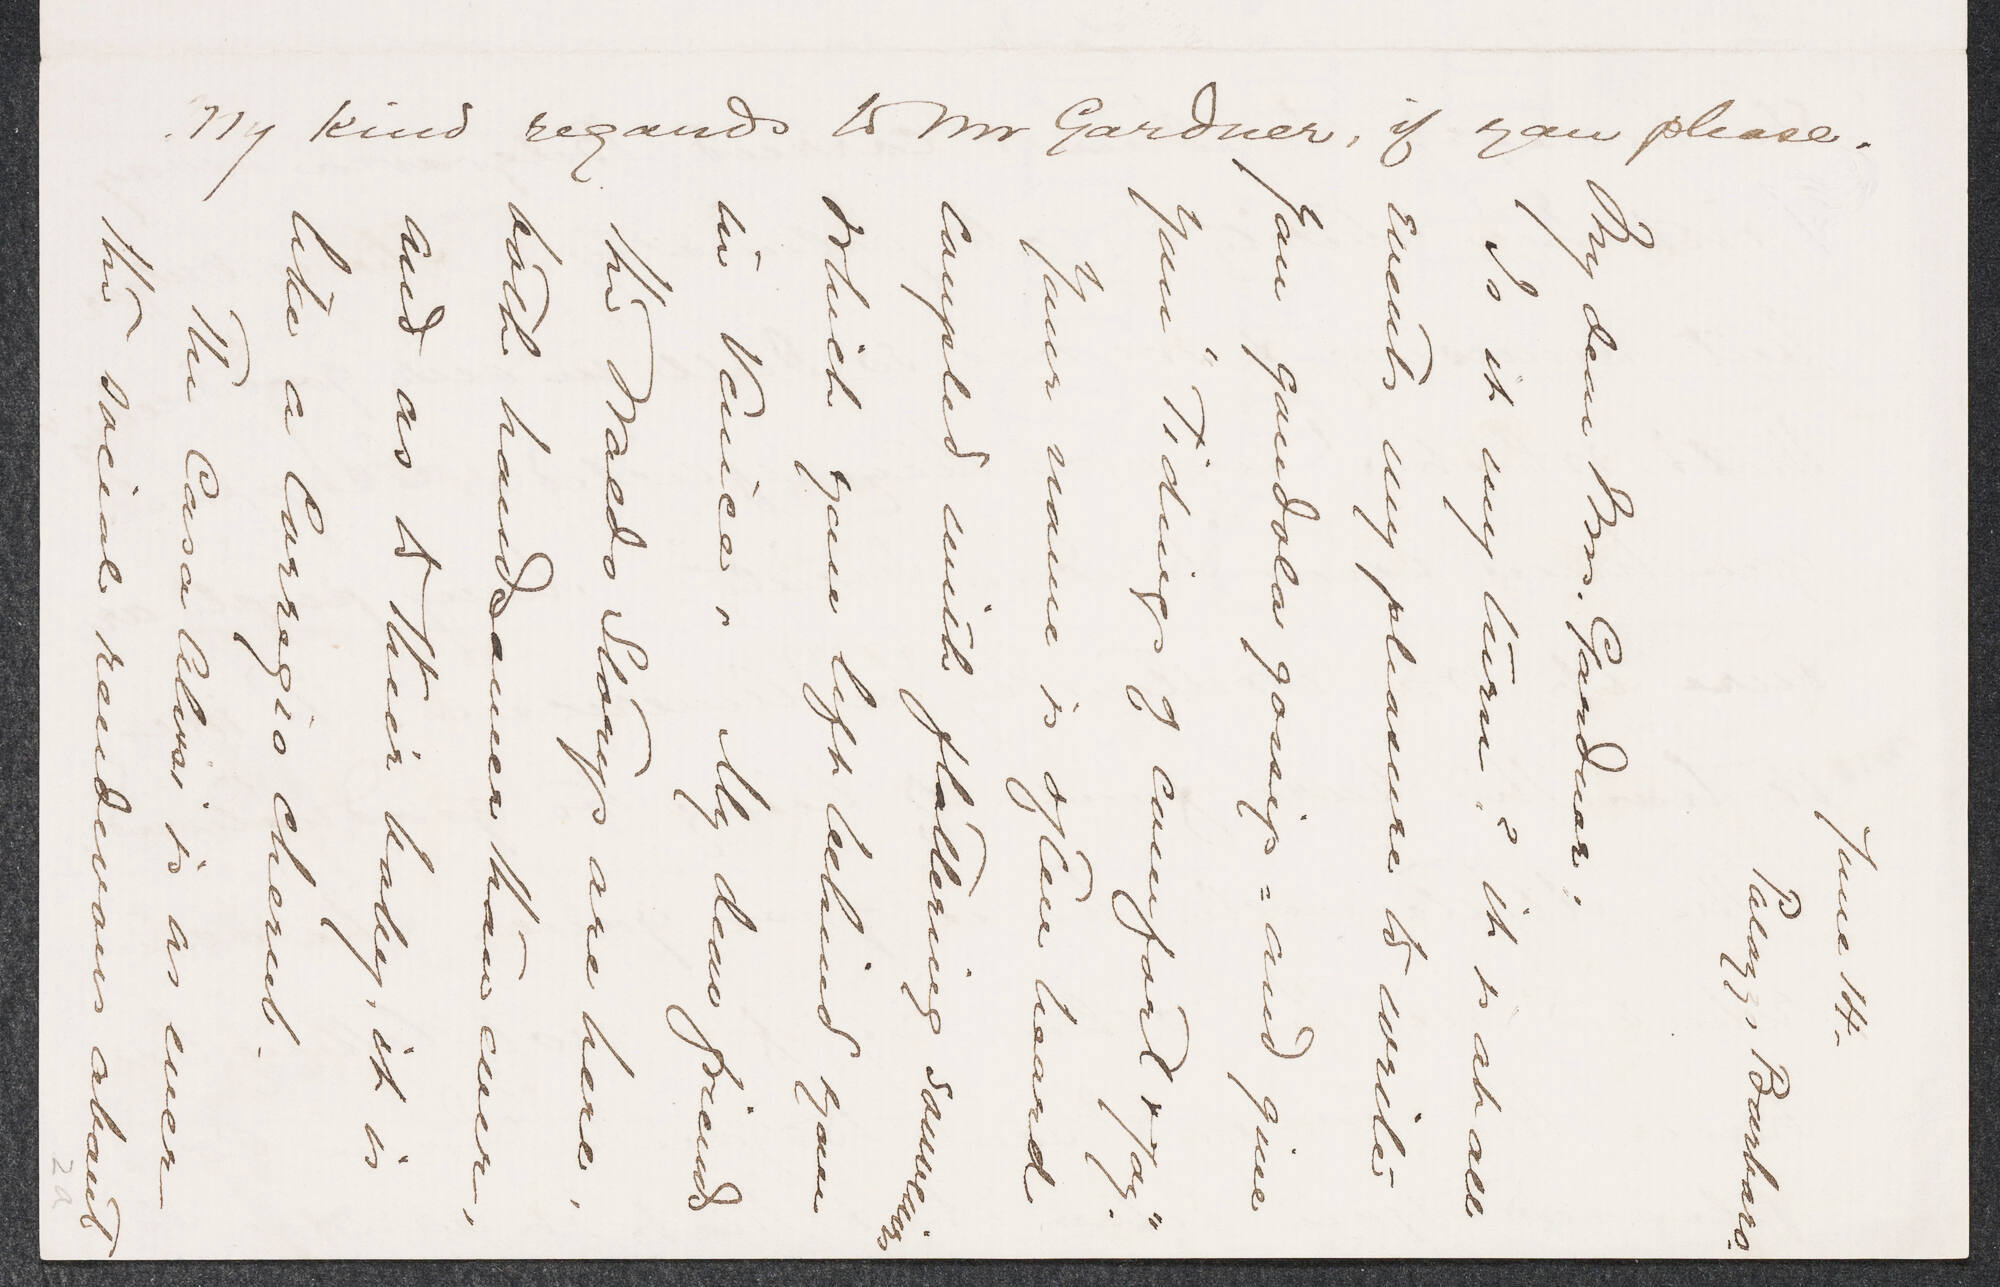 My kind regards to Mr Gardner, if you please.
June 14-
Palazzo Barbaro.
My dear Mrs. Gardner,
Is it my turn? it is at all
events my pleasure to write
you gondola gossip = and give
you "Tidings of Comfort & Joy."
Your name is often heard
coupled with flattering souvenirs
which you left behind you
in Venice, My dear friends
the Waldo Storys are here,
both handsomer than ever,
and as to their baby, it is
like a Corregio cherub.
The Casa Alvisi is as ever
the social rendevous about
2a